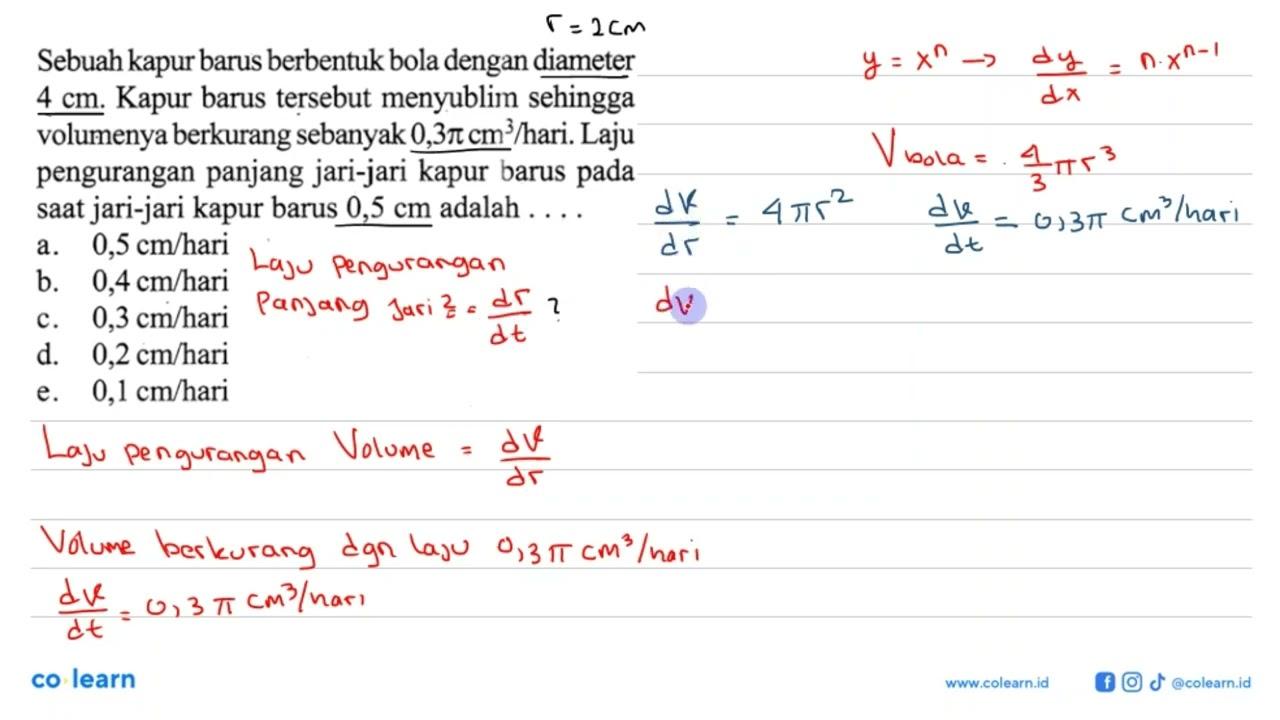 r = 2 cm
Sebuah kapur barus berbentuk bola dengan diameter
4 cm. Kapur barus tersebut menyublim sehingga
volumenya berkurang sebanyak 0,3π cm³/hari. Laju
pengurangan panjang jari-jari kapur barus pada
saat jari-jari kapur barus 0,5 cm adalah . . . .
a. 0,5 cm/hari
b. 0,4 cm/hari
c. 0,3 cm/hari
d. 0,2 cm/hari
e. 0,1 cm/hari
Laju pengurangan
Panjang Jari2 = dr/dt ?
y = xⁿ → dy/dx = n.xⁿ⁻¹
V bola = 4/3 πr³
dV/dr = 4πr² dV/dt = 0,3π cm³/hari
dV
Laju pengurangan Volume = dV/dr
Volume berkurang dgn laju 0,3π cm³/hari
dV/dt = 0,3π cm³/hari
co learn
www.colearn.id @colearn.id